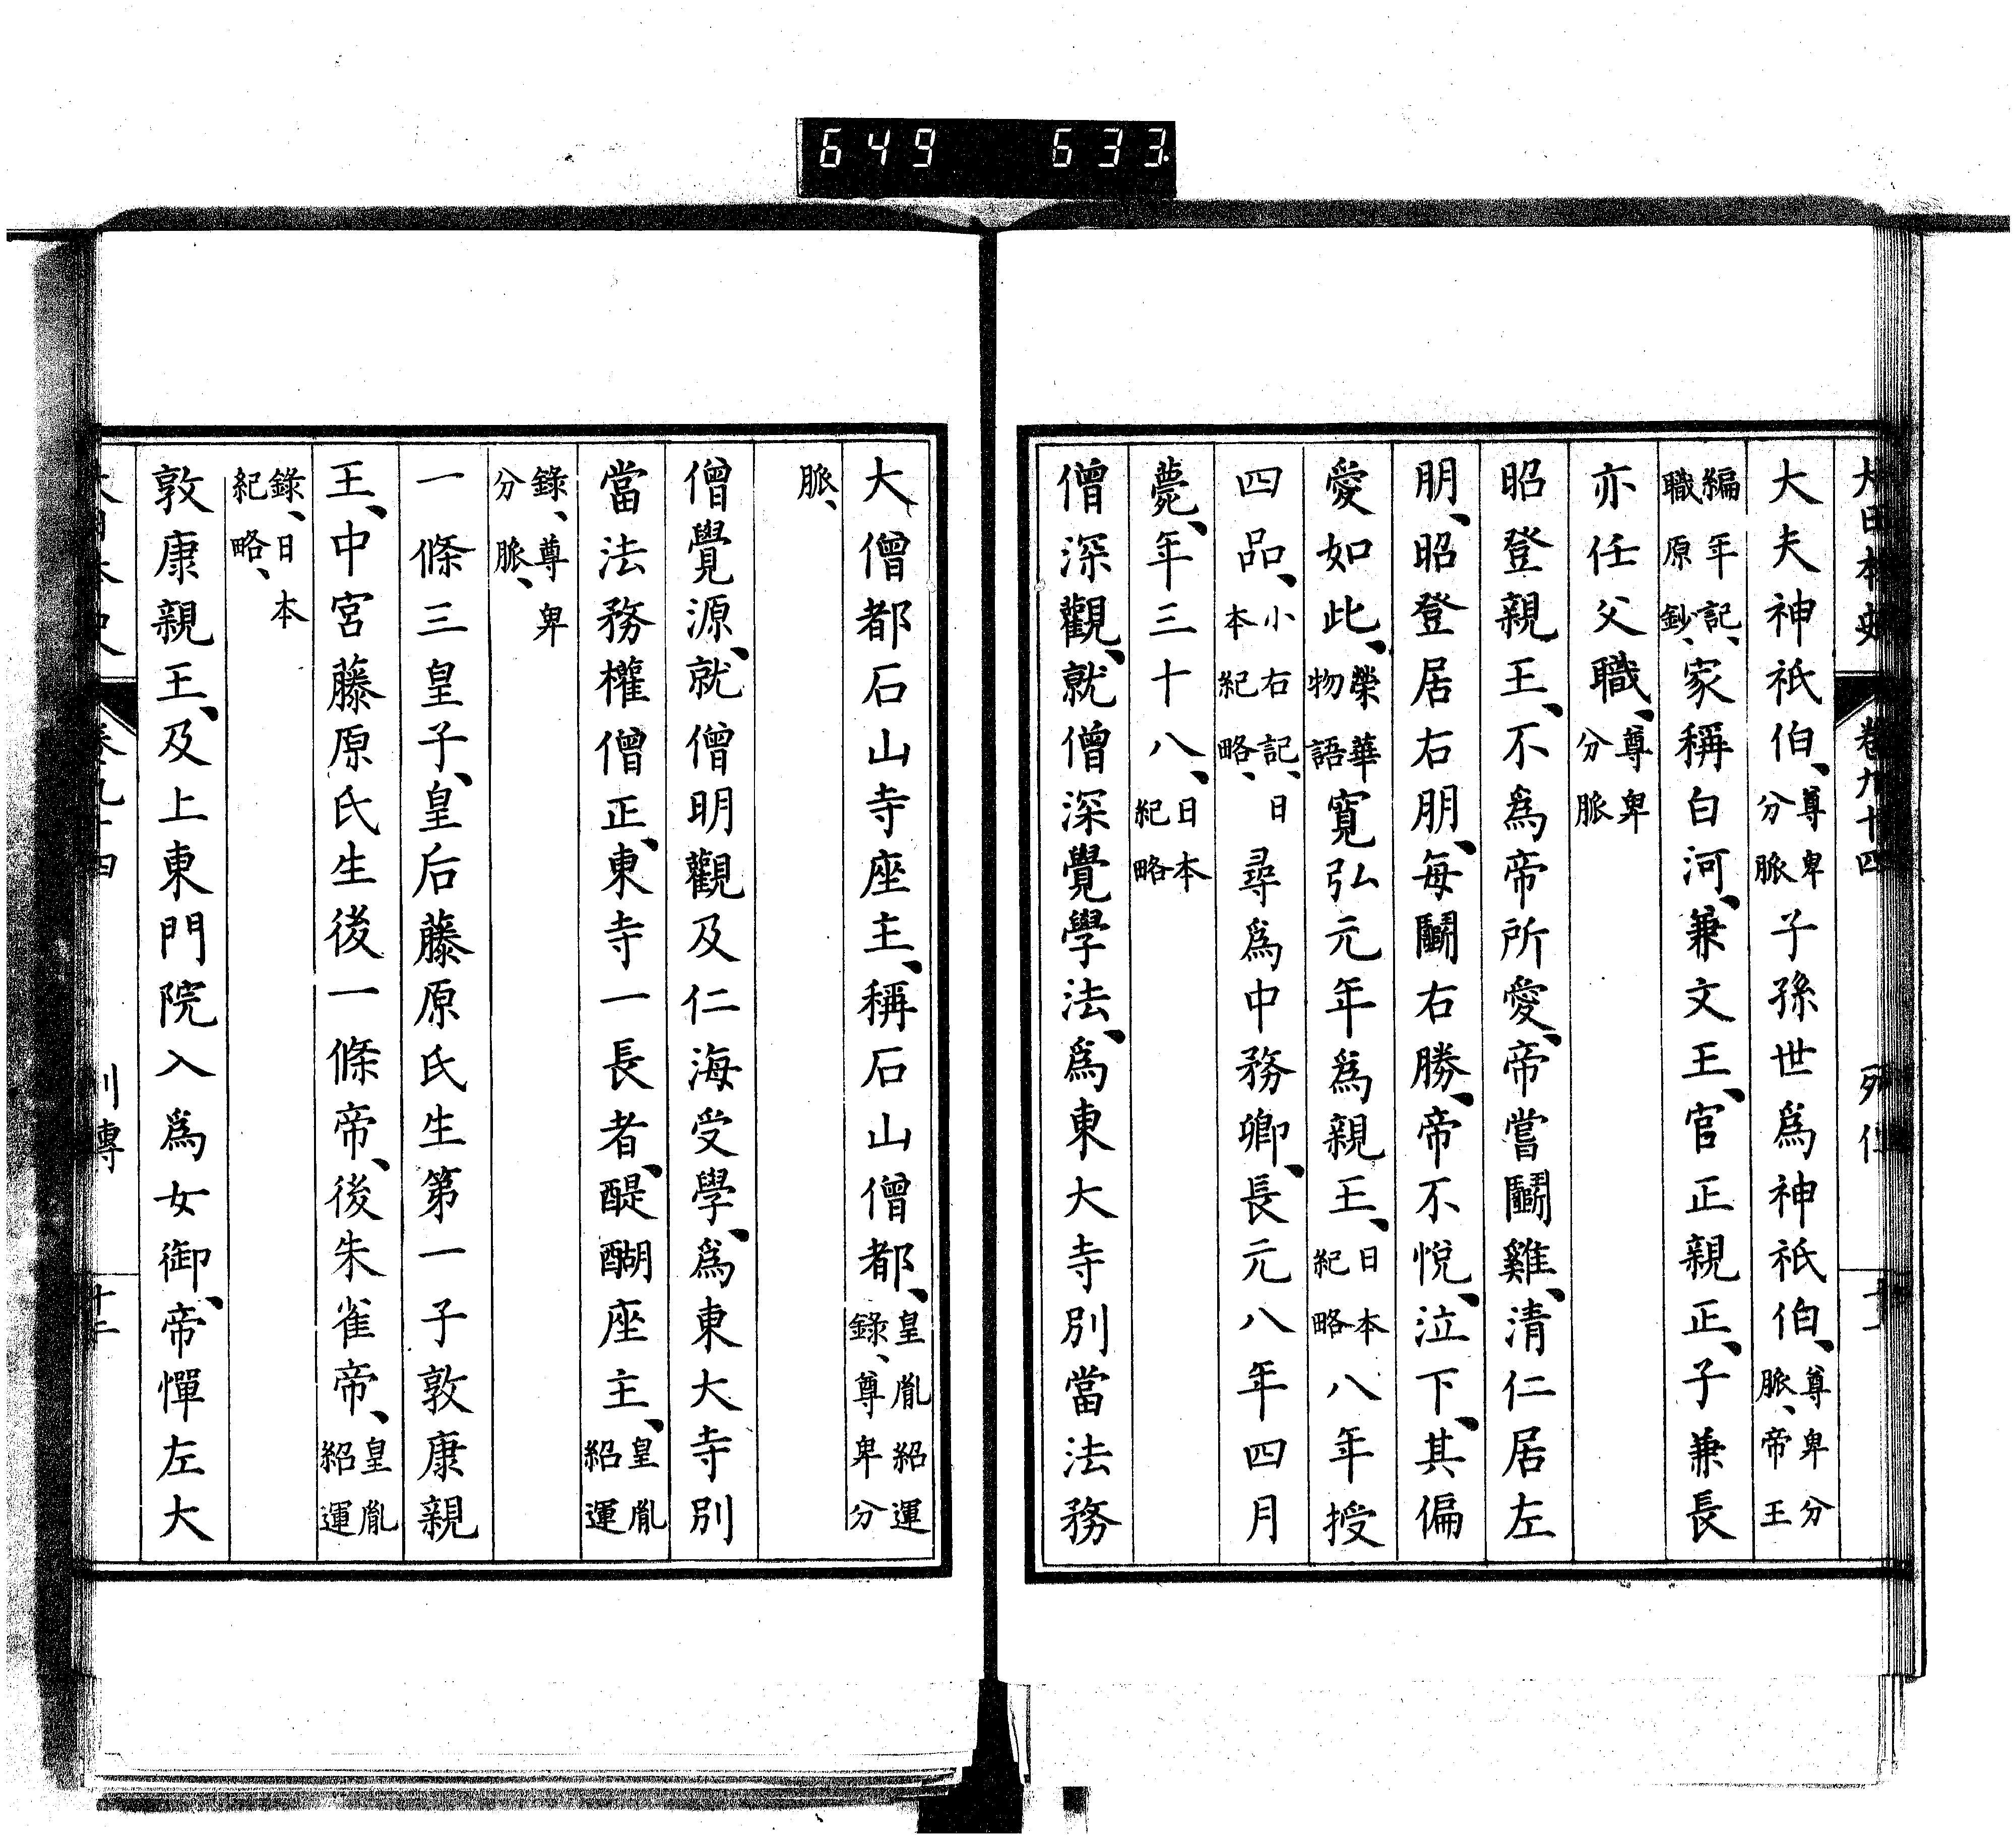 649 633
大日本史 卷九十四 列傳
大夫神祇伯、尊卑分脈子孫世爲神祇伯、尊卑分脈、帝王
編年記、職原鈔、家稱白河、兼文王、官正親正、子兼長
亦任父職、尊卑分脈
昭登親王、不爲帝所愛、帝嘗鬭雞、清仁居左
朋、昭登居右朋、每鬭右勝、帝不悅、泣下、其偏
愛如此、榮華物語寬弘元年爲親王、日本紀略八年授
四品、小右記、日本紀略、尋爲中務卿、長元八年四月
薨、年三十八、日本紀略
僧深觀、就僧深覺學法、爲東大寺別當法務
大僧都石山寺座主、稱石山僧都、皇胤紹運錄、尊卑分
脈、
僧覺源、就僧明觀及仁海受學、爲東大寺別
當法務權僧正、東寺一長者、醍醐座主、皇胤紹運
錄、尊卑分脈、
一條三皇子、皇后藤原氏生第一子敦康親
王、中宮藤原氏生後一條帝、後朱雀帝、皇胤紹運
錄、日本紀略、
敦康親王、及上東門院入爲女御、帝憚左大
大日本史 卷九十四 列傳 十二